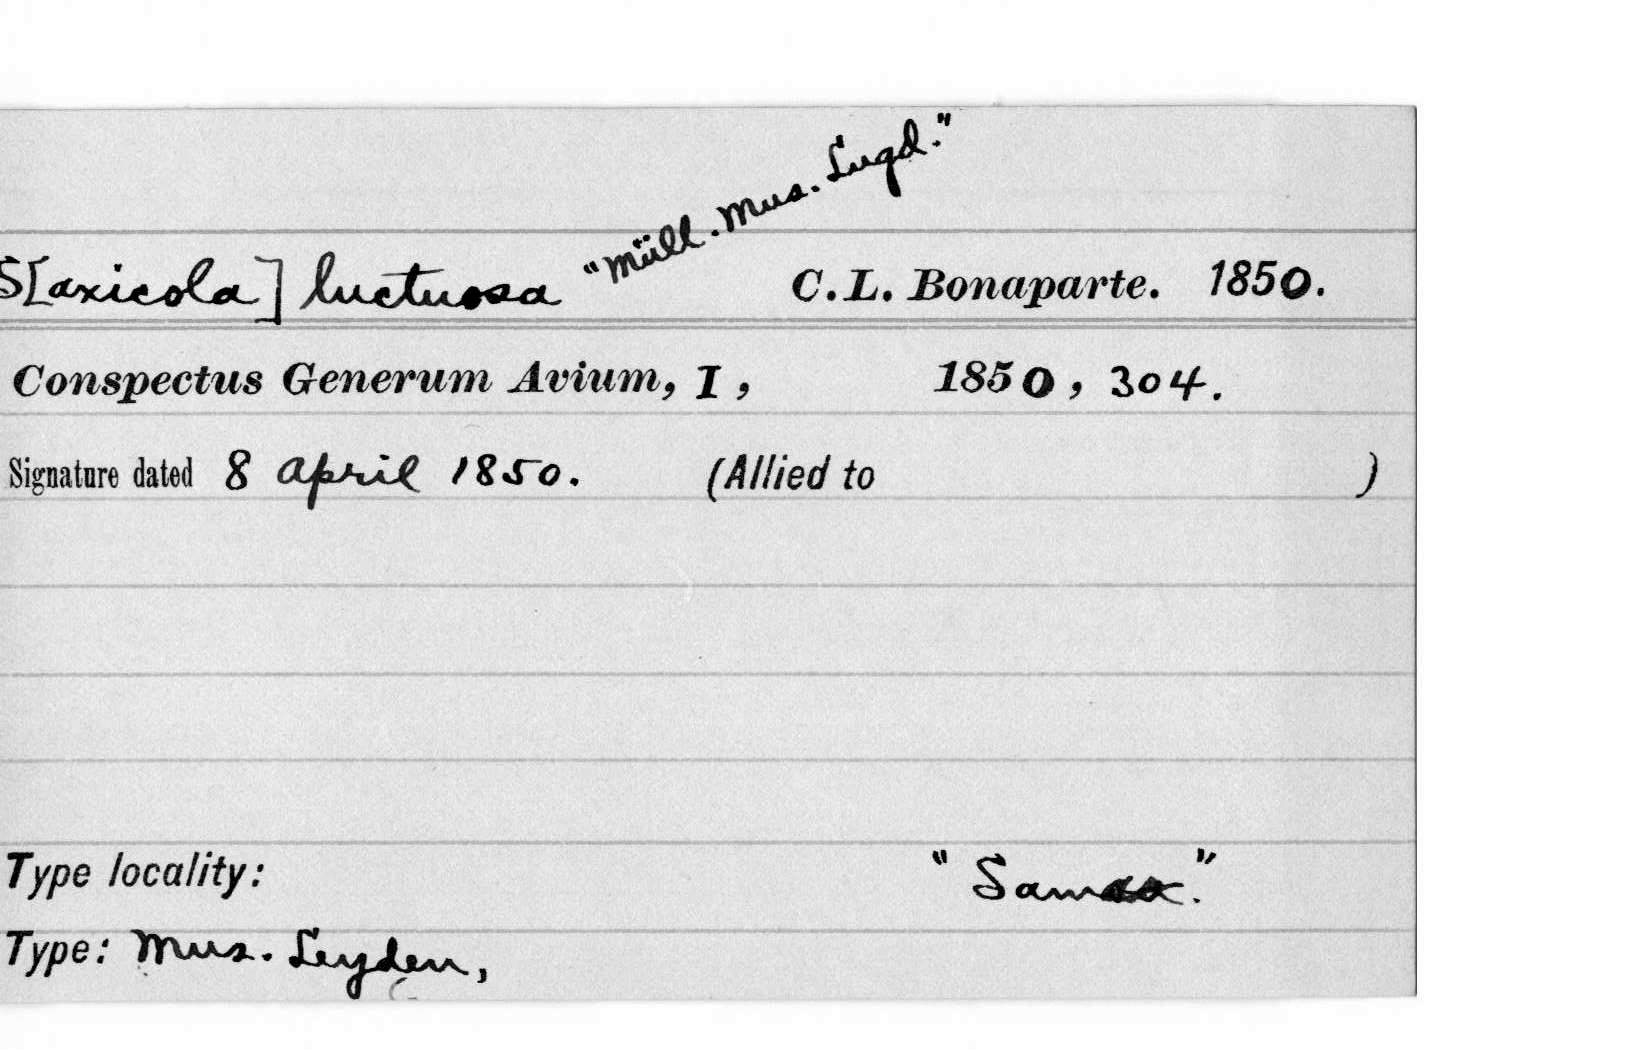 "Müll. Mus. Lugd."
S[axicola] luctuosa C.L. Bonaparte. 1850.
Conspectus Generum Avium, I, 1850, 304.
Signature dated 8 April 1850. (Allied to )
Type locality:
Type: Mus. Leyden,